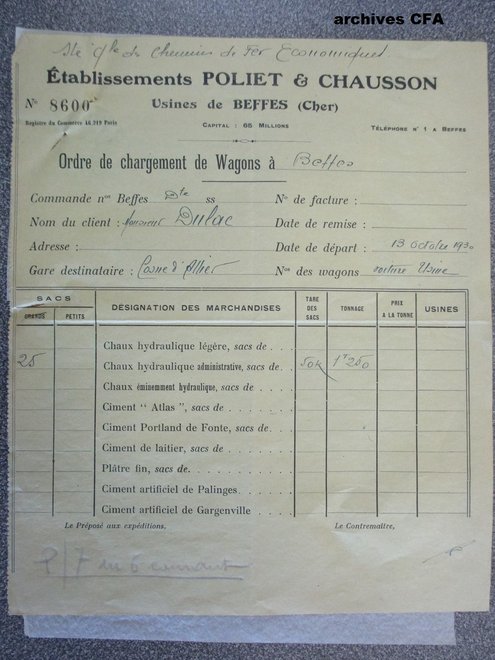 archives CFA
Sté Gle des Chemins de Fer Economiques
Établissements POLIET & CHAUSSON
No 8600 Usines de BEFFES (Cher)
Registre du Commerce 46.219 Paris CAPITAL : 65 MILLIONS TÉLÉPHONE N° 1 A BEFFES
Ordre de chargement de Wagons à Beffes
Commande nos Beffes Dte ss No de facture :
Nom du client : Monsieur Dulac Date de remise :
Adresse : Date de départ : 13 Octobre 1930
Gare destinataire : Cosne d'Allier Nos des wagons voiture Usine
SACS DÉSIGNATION DES MARCHANDISES TARE DES SACS TONNAGE PRIX A LA TONNE USINES
GRANDS PETITS
Chaux hydraulique légère, sacs de . . .
25 Chaux hydraulique administrative, sacs de . 50k 1T250
Chaux éminemment hydraulique, sacs de . . .
Ciment " Atlas ", sacs de . . . . . .
Ciment Portland de Fonte, sacs de . . . .
Ciment de laitier, sacs de . . . . .
Plâtre fin, sacs de . . . . . . . .
Ciment artificiel de Palinges . . . .
Ciment artificiel de Gargenville . . . .
Le Préposé aux expéditions, Le Contremaître,
P/7 du 6 courant